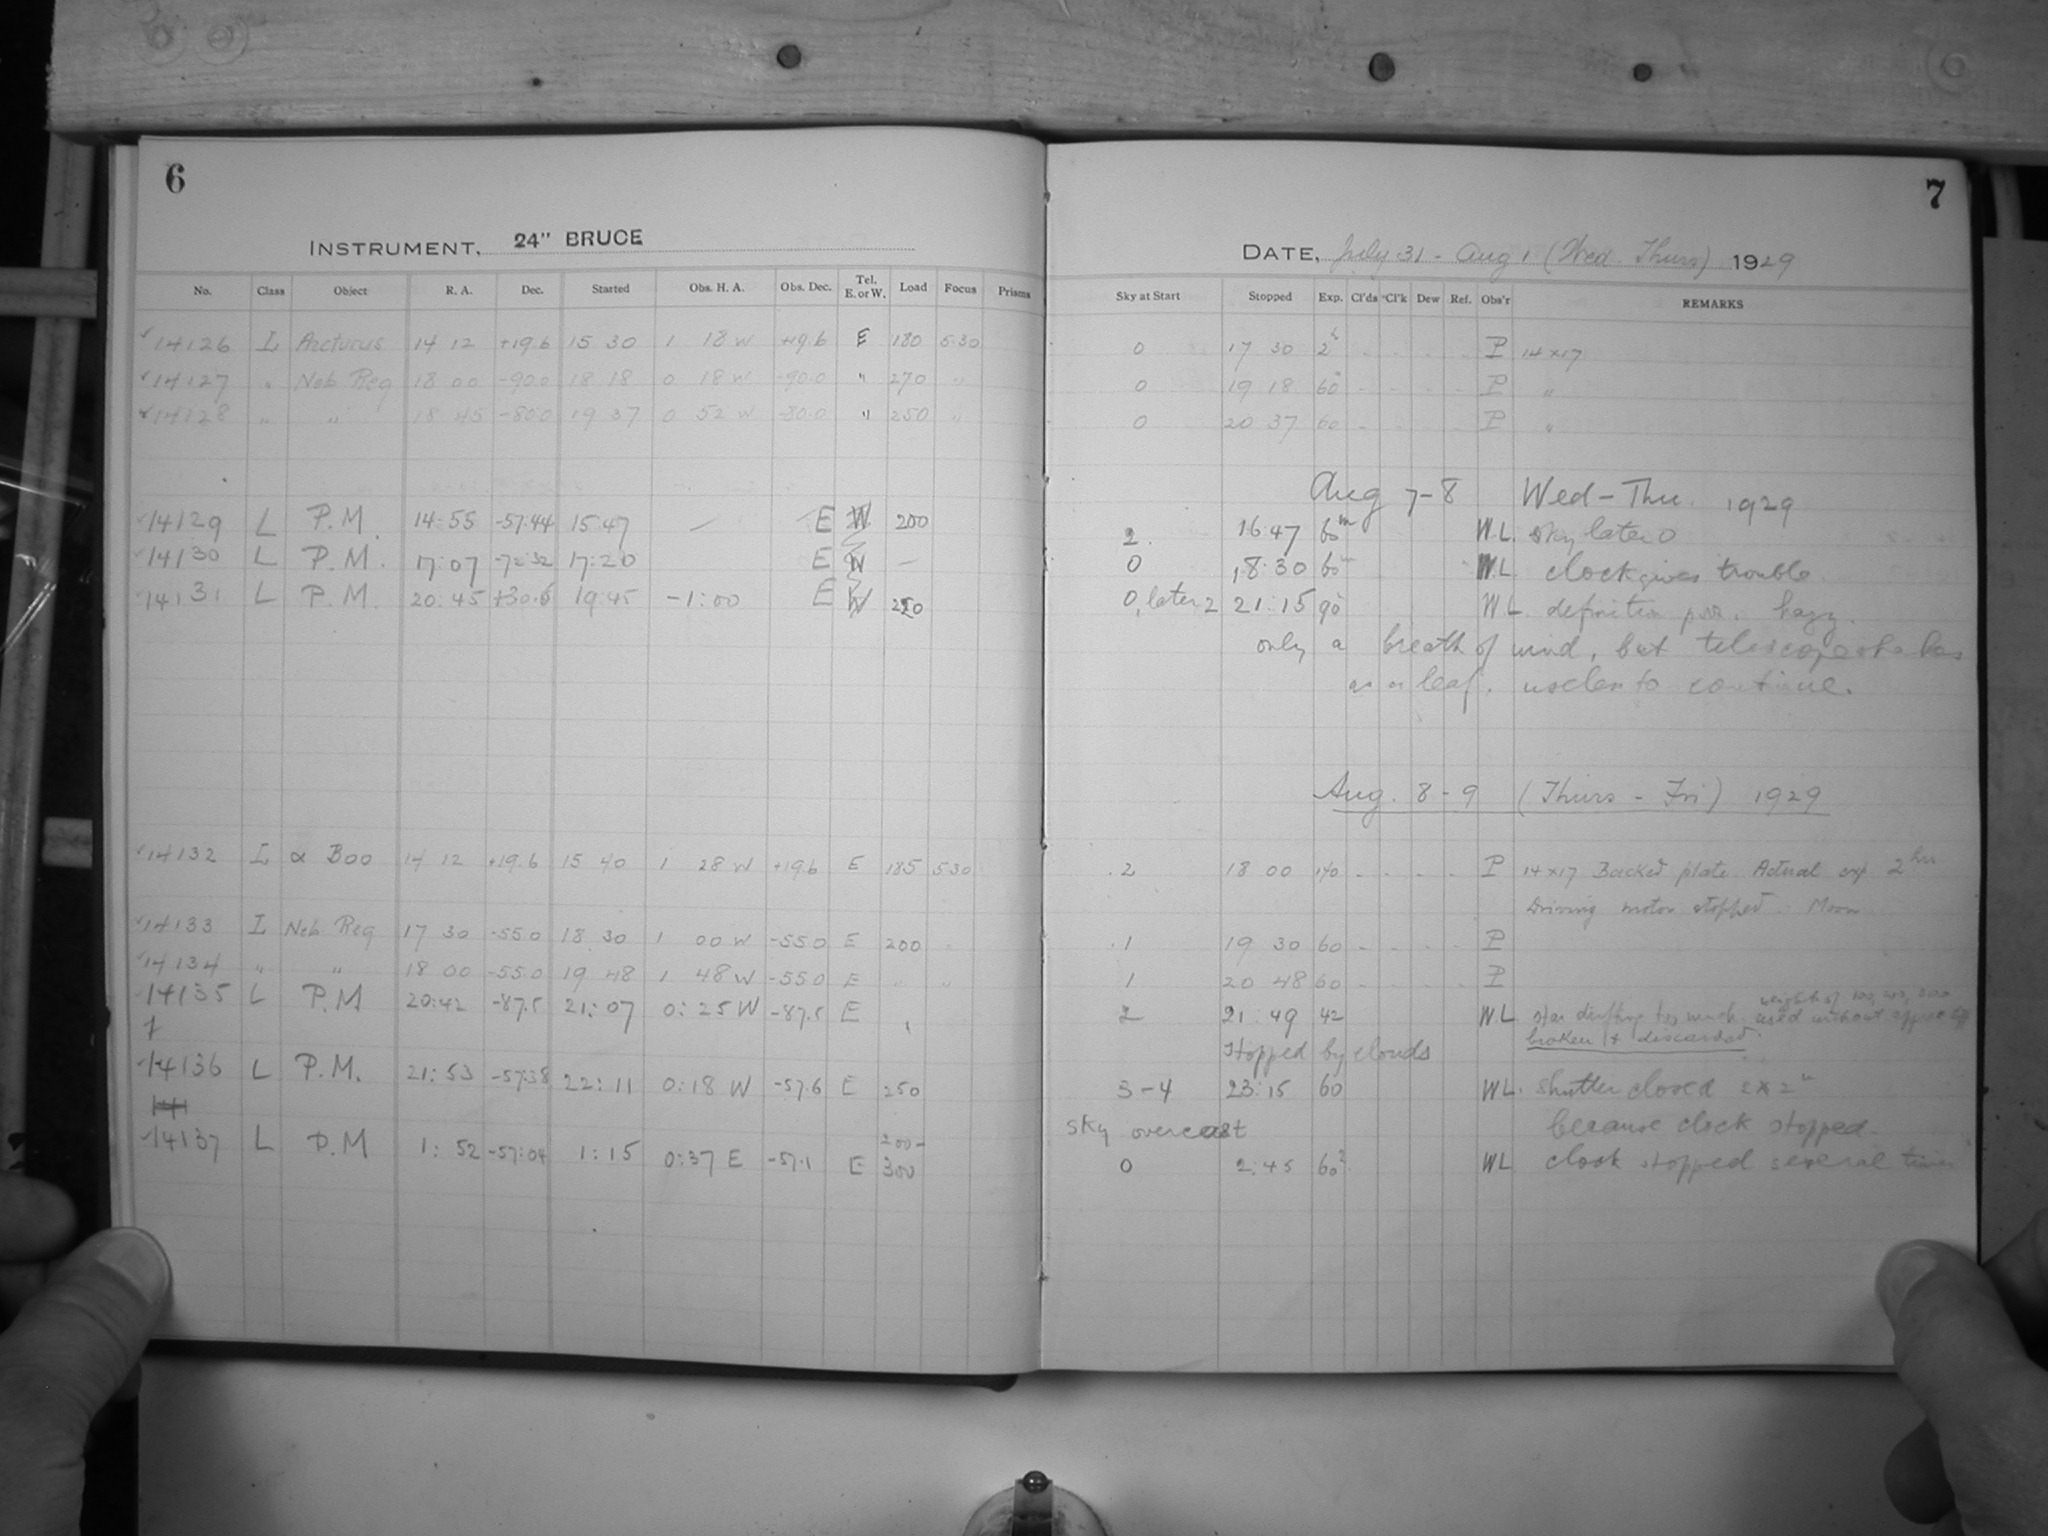 6
INSTRUMENT, 24" BRUCE
No. Class Object R. A. Dec. Started Obs. H. A. Obs. Dec. Tel. E. or W. Load Focus Prisms
14126 L Arcturus 14 12 +19.6 15 30 1 18 W +19.6 E 180 5.30
14127 " Neb Reg 18 00 -90.0 18 18 0 18 W -90.0 " 270 "
14128 " " 18 45 -80.0 19 37 0 52 W -80.0 " 250 "
14129 L P.M. 14:55 -57:44 15:47 — E W 200
14130 L P.M. 17:07 -72:32 17:20 E W —
14131 L P.M. 20:45 +30.6 19:45 -1:00 E W 250
14132 L α Boo 14 12 +19.6 15 40 1 28 W +19.6 E 185 5.30
14133 L Neb Reg 17 30 -55.0 18 30 1 00 W -55.0 E 200 "
14134 " " 18 00 -55.0 19 48 1 48 W -55.0 E " "
14135 L P.M 20:42 -87.5 21:07 0:25 W -87.5 E
14136 L P.M. 21:53 -57:38 22:11 0:18 W -57.6 E 250
14137 L P.M 1:52 -57:04 1:15 0:37 E -57.1 E 200-300
7
DATE, July 31 - Aug 1 (Wed. Thurs) 1929
Sky at Start Stopped Exp. Cl'ds Cl'k Dew Ref. Obs'r REMARKS
0 17 30 2h - - - - P 14 x 17
0 19 18 60 - - - - P "
0 20 37 60 - - - - P "
Aug 7-8 Wed-Thu. 1929
2. 16:47 60m W.L. sky later 0
0 18:30 60 W.L. clock gives trouble.
0, later 2 21:15 90 W.L. definition poor. hazy.
only a breath of wind, but telescope shakes
as a leaf. useless to continue.
Aug. 8-9 (Thurs - Fri) 1929
2 18 00 140 - - - - P 14 x 17 Backed plate Actual exp 2 hrs
Driving motor stopped - Moon
1 19 30 60 - - - - P
1 20 48 60 - - - - P
2 21:49 42 W.L. star drifting too much. weights of 100, 200, 300 used without
Stopped by clouds broken & discarded.
3-4 23:15 60 W.L. shutter closed 2x2m
sky overcast because clock stopped.
0 2:45 60? WL clock stopped several times